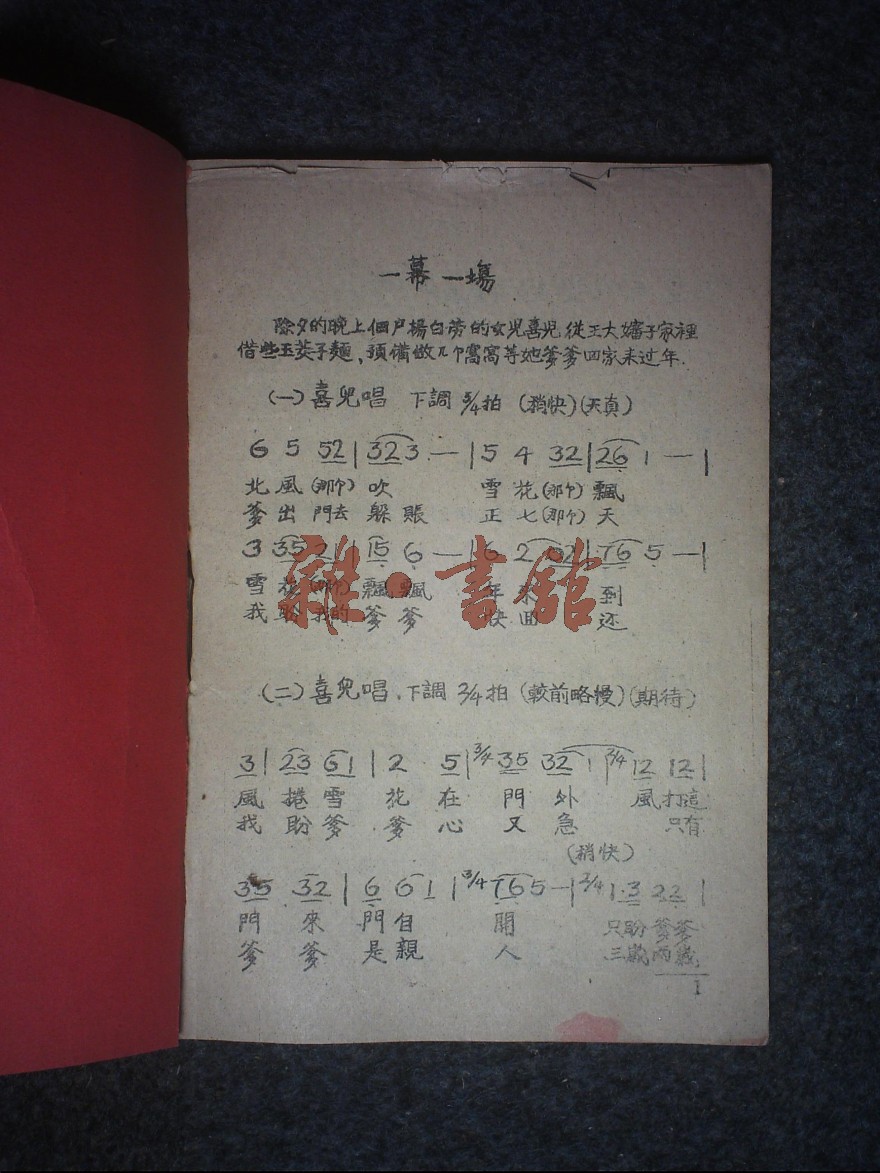 一幕一場
除夕的晚上佃户揚白劳的女児喜児從王大嬸子家裡
借些玉茭子麵,預備做几个窩窩等她爹爹回家来过年.
(一)喜兒唱 下調 3/4拍 (稍快)(天真)
6 5 52 | 323 — | 5 4 32 | 26 1 — |
北風(那个)吹 雪花(那个)飄
爹出門去躲賬 正七(那个)天
3 35 2 | 15 6 — | 6 2 02 | 76 5 — |
雪花(那个)飄飄 年來到
我盼我的爹爹 快回还
雜·書館
(二)喜兒唱.下調 2/4拍(較前略慢)(期待)
3 | 23 61 | 2 5 | 3/4 35 32 1 | 2/4 12 12 |
風捲雪花在門外 風打這
我盼爹爹心又急 只有
(稍快)
35 32 | 6 61 | 3/4 765 — | 2/4 1.3 22 |
門來門自開 只盼爹爹
爹爹是親人 三歲兩歲
1